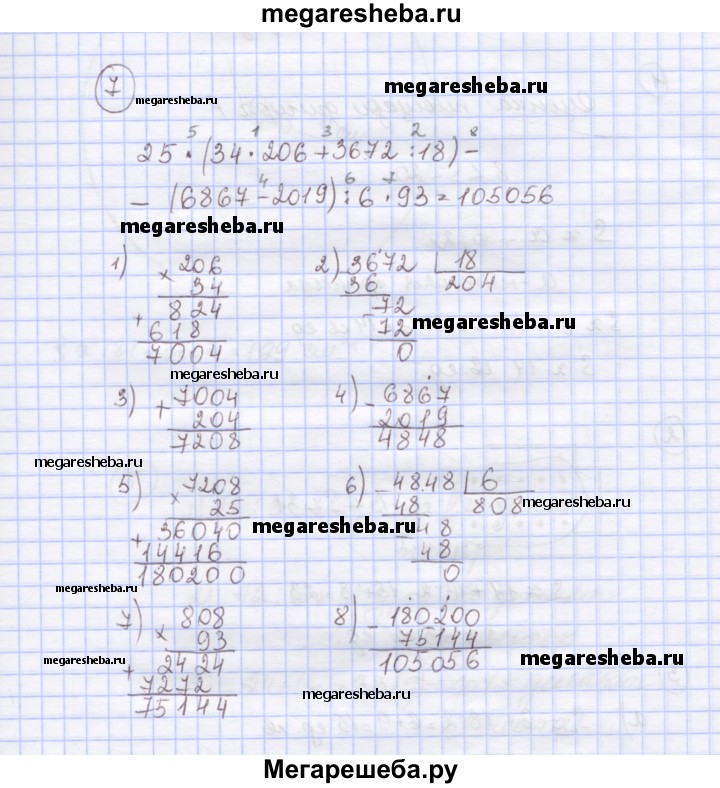 megaresheba.ru
7
megaresheba.ru
megaresheba.ru
5 1 3 2 8
25 · (34 · 206 + 3672 : 18) −
4 6 7
− (6867 − 2019) : 6 · 93 = 105056
megaresheba.ru
1) × 206
34
+ 824
618
7004
2) 3672 | 18
36 204
− 72
72
0
megaresheba.ru
megaresheba.ru
3) + 7004
204
7208
4) − 6867
2019
4848
megaresheba.ru
5) × 7208
25
+ 36040
14416
180200
6) − 4848 | 6
48 808
− 48
48
0
megaresheba.ru
megaresheba.ru
megaresheba.ru
7) × 808
93
+ 2424
7272
75144
8) − 180200
75144
105056
megaresheba.ru
megaresheba.ru
megaresheba.ru
Мегарешеба.ру